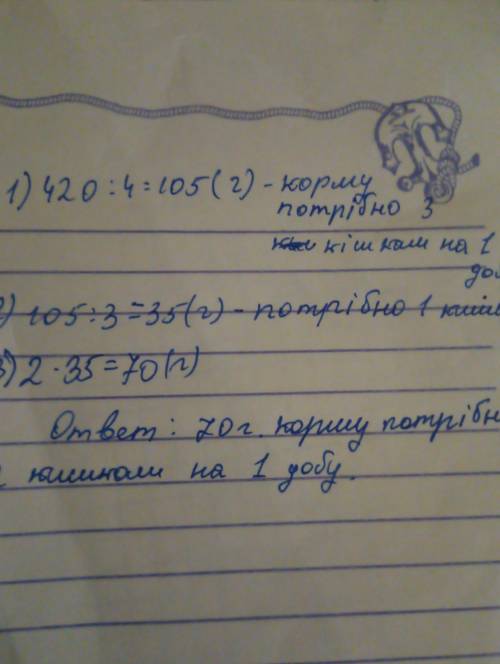 1) 420:4=105(г) - корму
потрібно 3
кішкам на 1
105:3=35(г) - потрібно 1
3) 2·35=70(г)
Ответ: 70 г. корму
кішкам на 1 добу.